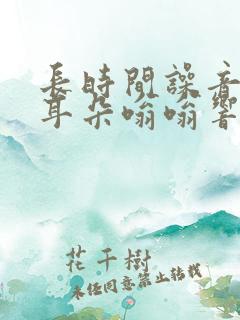 長時間譟音
耳朵嗡嗡響
花千樹
未经同意禁止转载